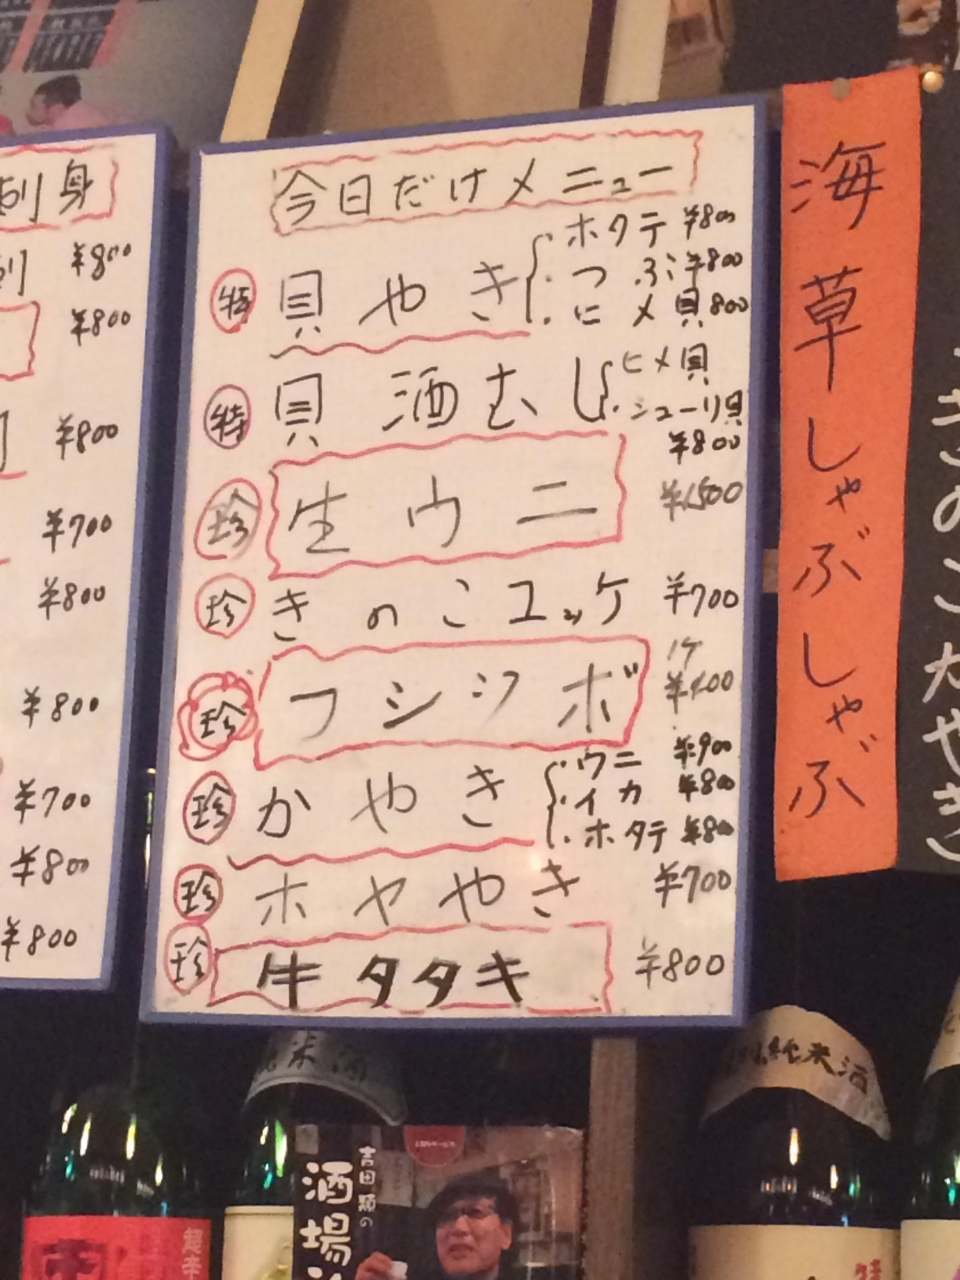 刺身
刺 ¥800
¥800
¥800
¥700
¥800
¥800
¥700
¥800
¥800
今日だけメニュー
特 貝やき
ホタテ ¥800
つぶ ¥800
ヒメ貝 800
特 貝酒むし
ヒメ貝
シューリ貝
¥800
珍 生ウニ ¥1,500
珍 きのこユッケ ¥700
珍 フジツボ 1ケ ¥400
珍 かやき
ウニ ¥900
イカ ¥800
ホタテ ¥800
珍 ホヤやき ¥700
珍 牛タタキ ¥800
海草しゃぶしゃぶ
きのこかやき
純米酒
純米酒
吉田類の
酒場